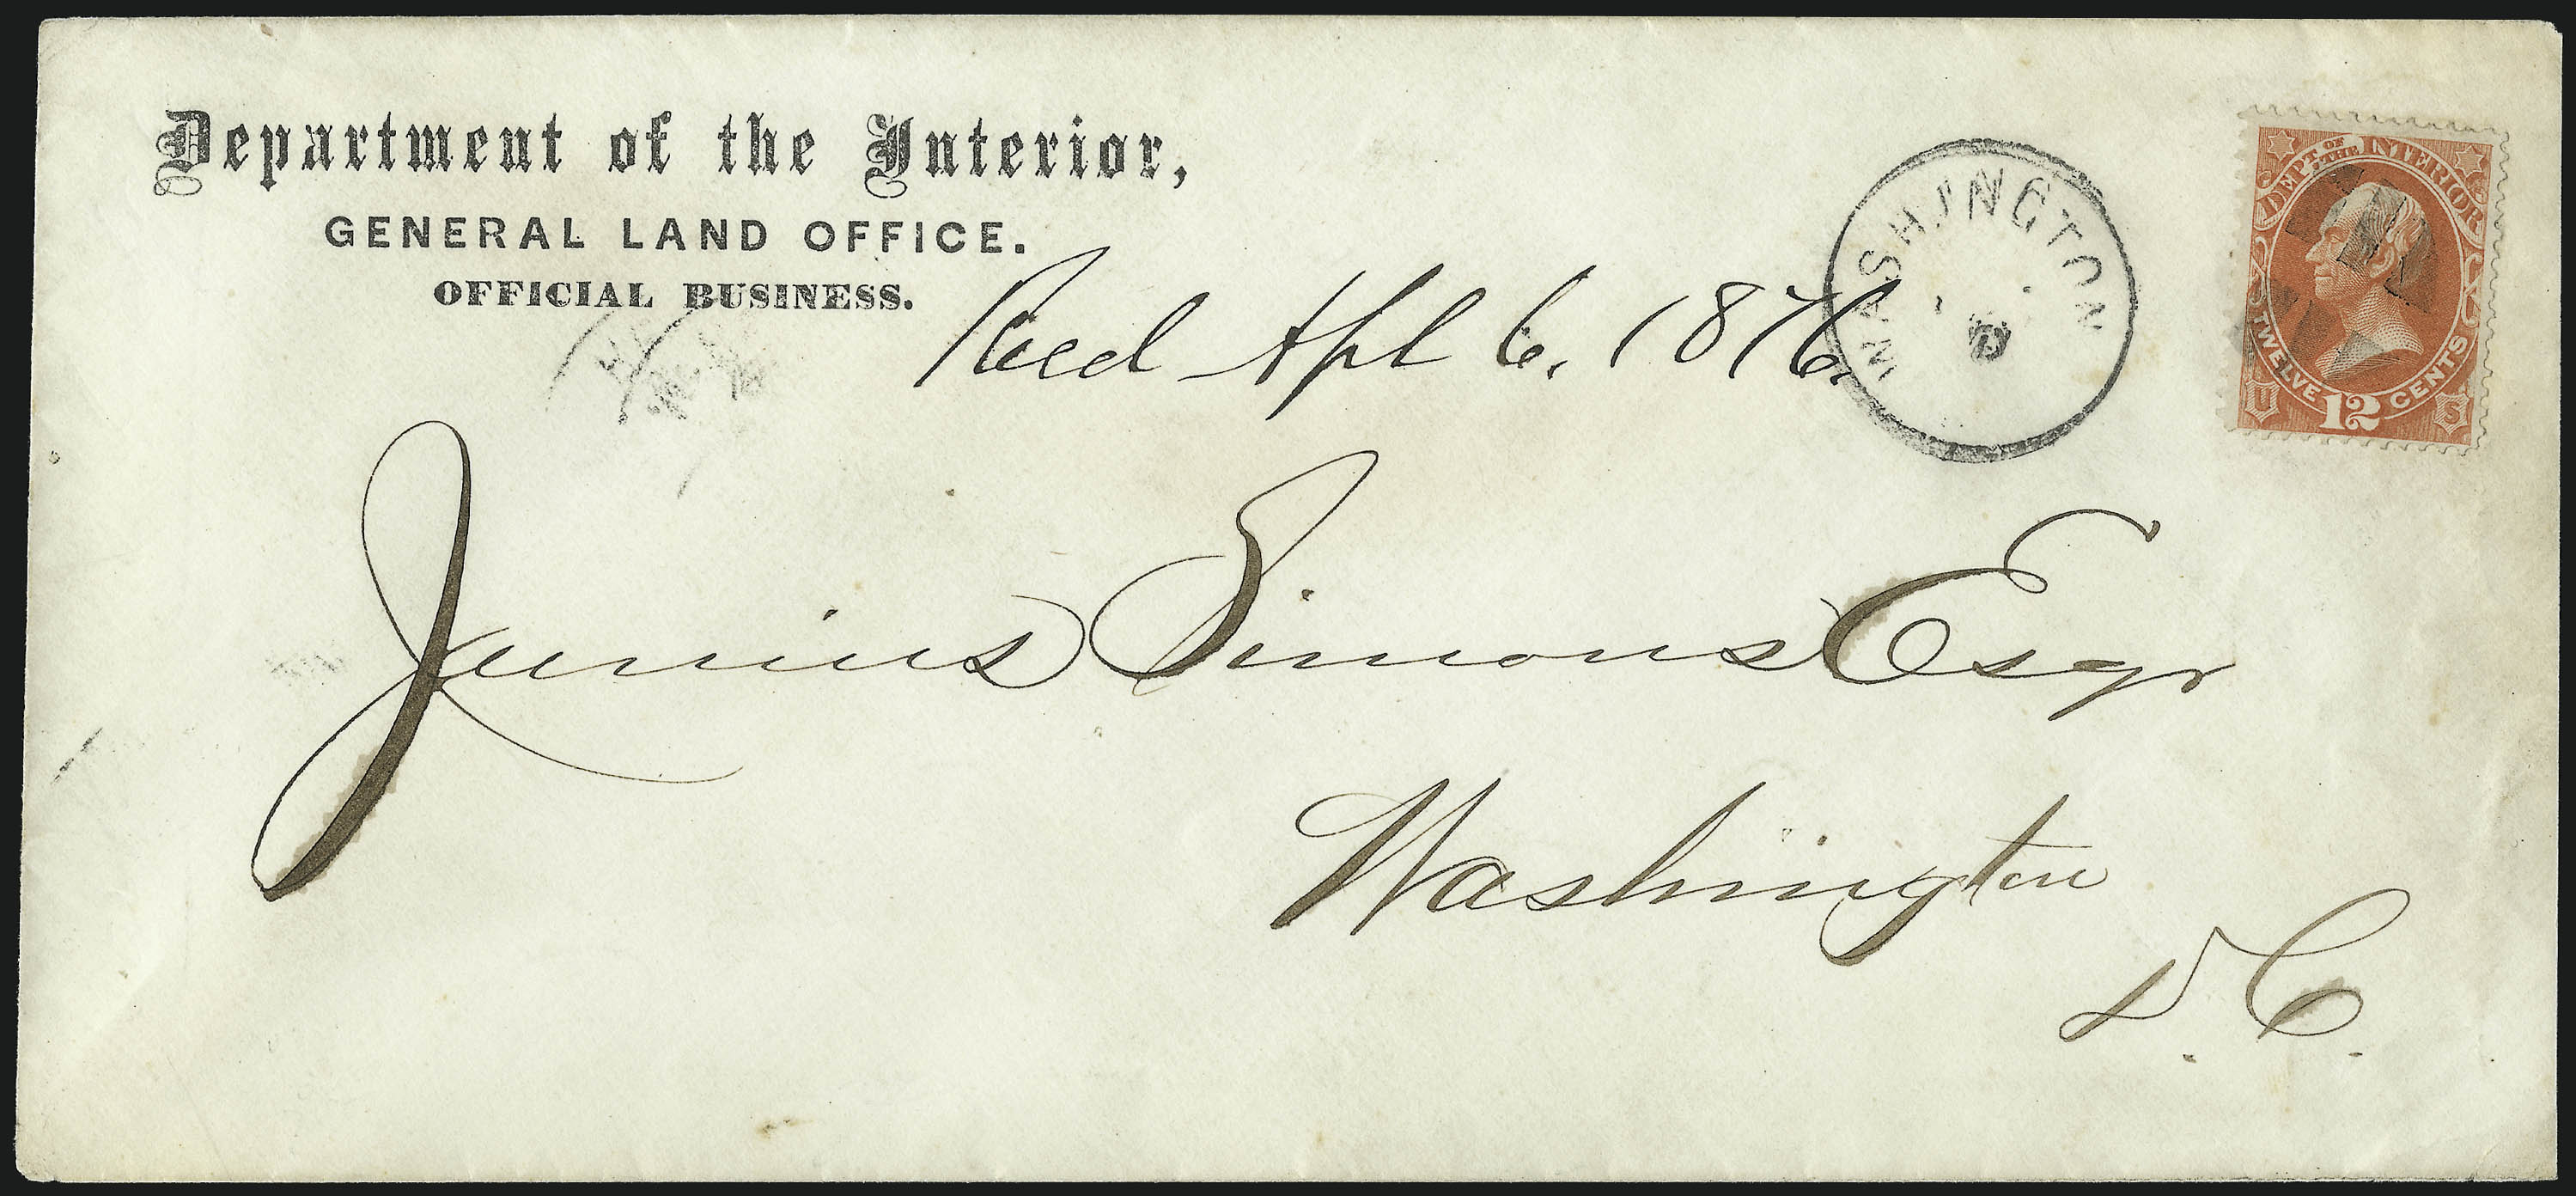 Department of the Interior,
GENERAL LAND OFFICE.
OFFICIAL BUSINESS.
Recd Apl 6, 1876.
WASHINGTON
DEPT. OF THE INTERIOR
TWELVE 12 CENTS
U S
Junius Simons Esqr
Washington
D. C.